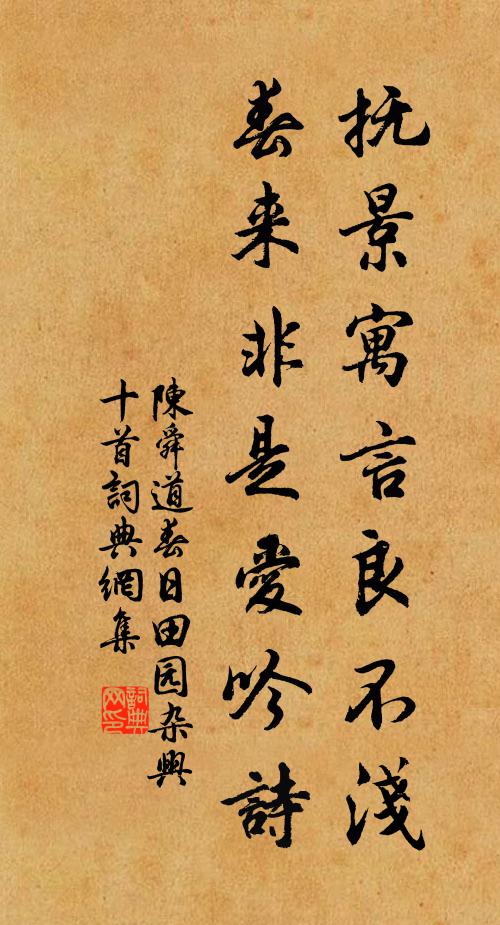 抚景寓言良不淺
春来非是愛吟詩
陳舜道春日田园杂興
十首詞典網集
詞典
网印